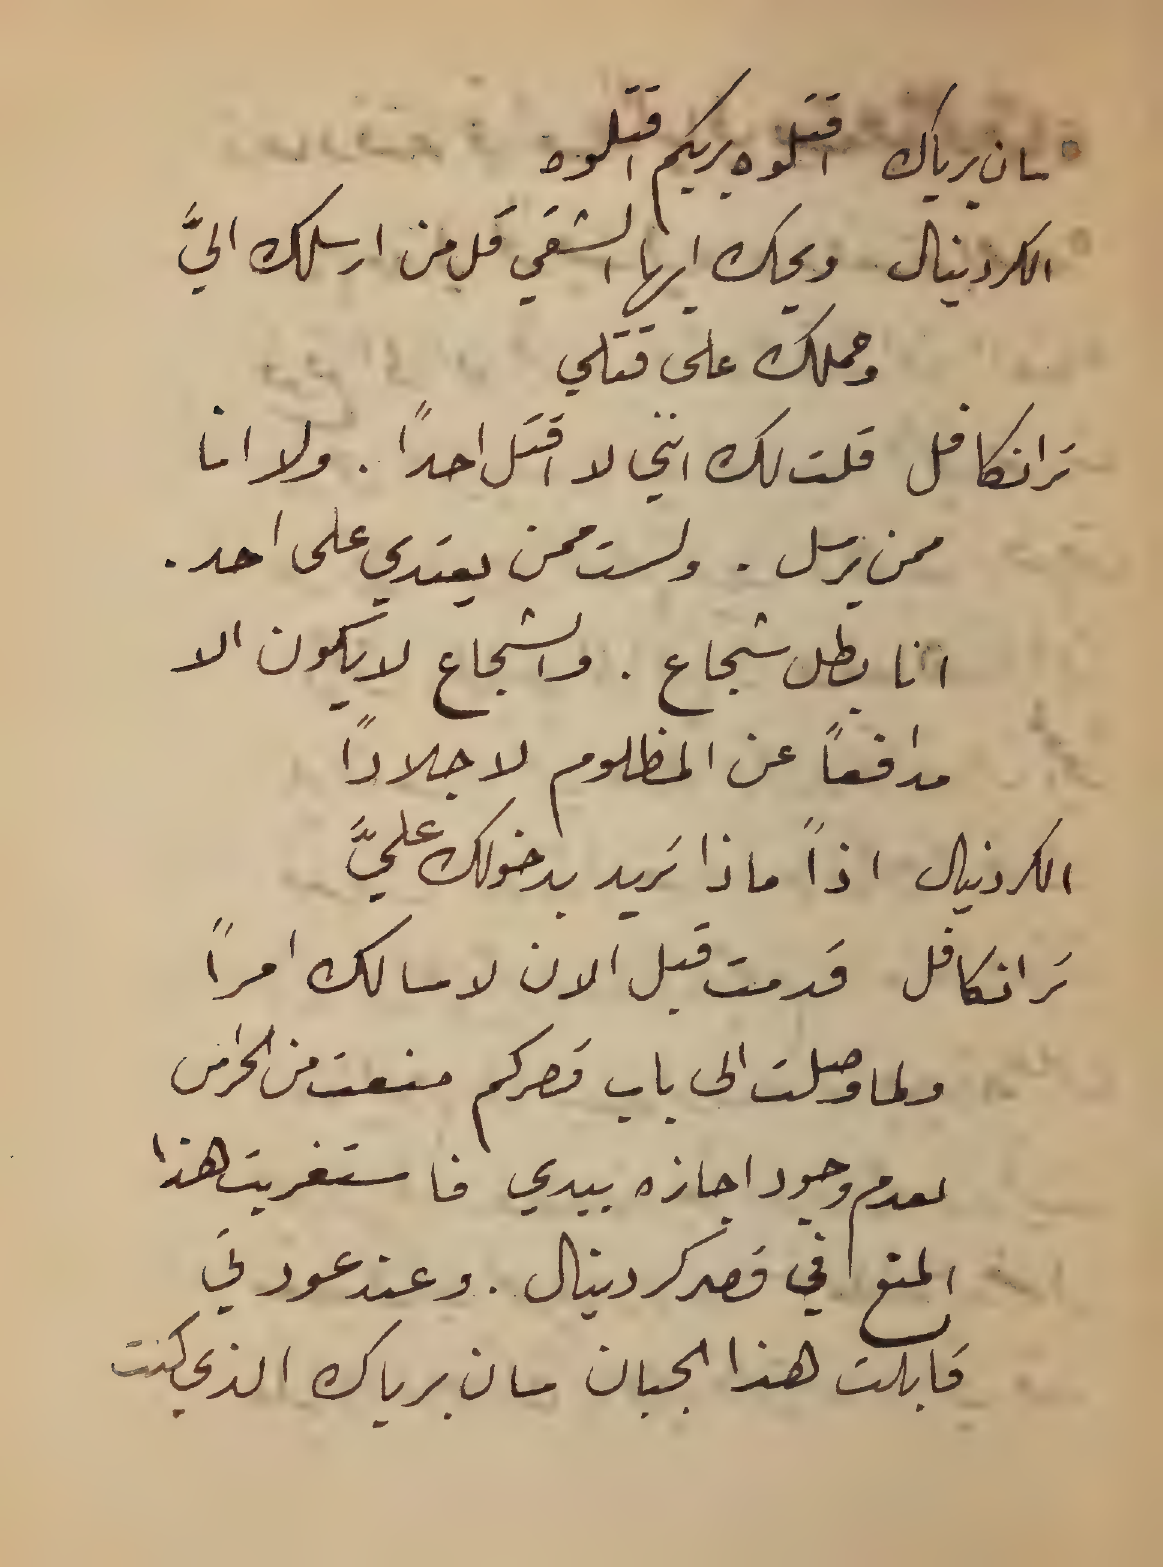 سان برياك اقتلوه بريكم اقتلوه
الكردينال ويحك ايها الشقي قل من ارسلك اليَّ
وحملك على قتلي
ترانكافل قلت لك انني لا اقتل احداً . ولا انا
ممن يرسل . ولست ممن يعتدي على احد .
انا بطل شجاع . والشجاع لا يكون الا
مدافعاً عن المظلوم لا جلاداً
الكردنيال اذاً ماذا تريد بدخولك عليَّ
ترانكافل قدمت قبل الان لاسالك امراً
ولما وصلت الى باب قصركم منعت من الحراس
لعدم وجود اجازه بيدي فاستغربت هذا
المنع في قصر كردينال . وعند عودتي
قابلت هذا الجبان سان برياك الذي كنت